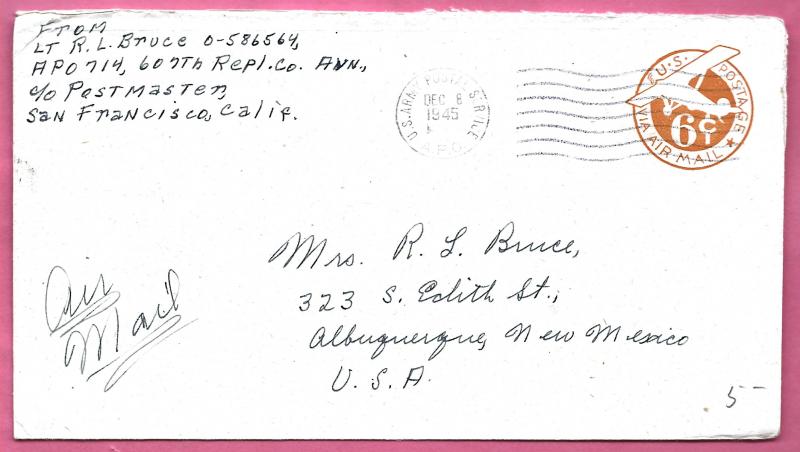 From
LT R. L. Bruce O-586564,
APO 714, 607TH Repl. Co. AVN.,
c/o Postmaster,
San Francisco, Calif.
U.S. ARMY POSTAL SERVICE
DEC 8
1945
A.P.O.
U.S. POSTAGE
6¢
VIA AIR MAIL
Mrs. R. L. Bruce,
323 S. Edith St.,
Albuquerque, New Mexico
U. S. A.
Air
Mail
5-